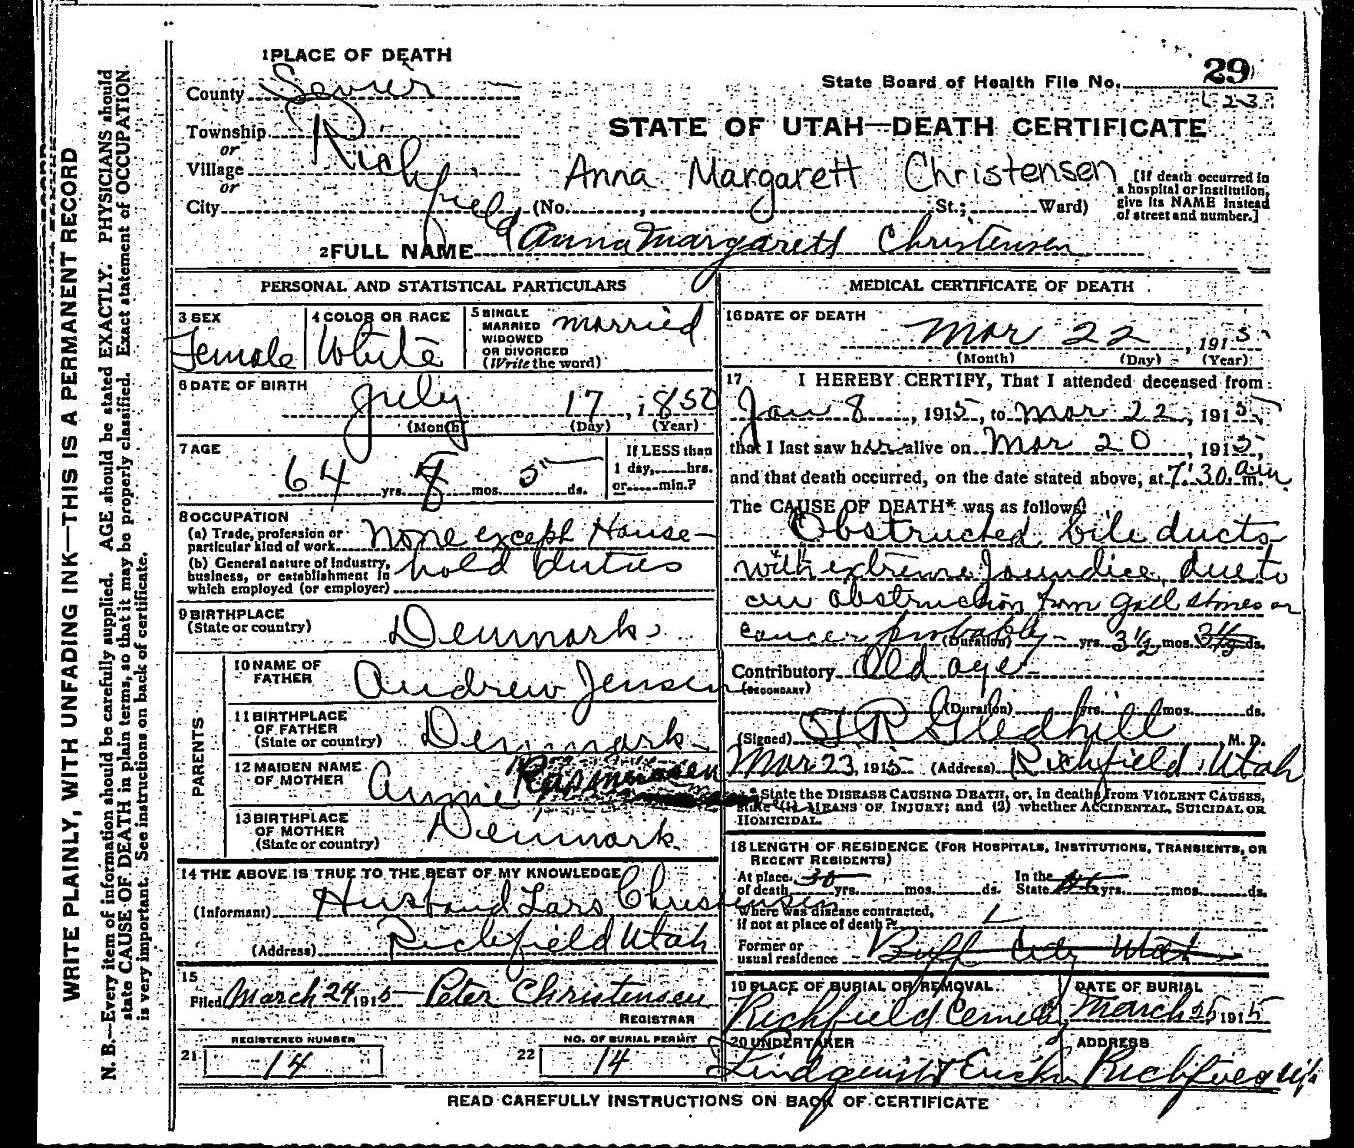 1 PLACE OF DEATH
County Sevier
State Board of Health File No. 29
Township
or
Village
or
City Richfield
STATE OF UTAH—DEATH CERTIFICATE
Anna Margarett Christensen
(No. , St.; Ward)
[If death occurred in a hospital or institution, give its NAME instead of street and number.]
2 FULL NAME Anna Margarett Christensen
PERSONAL AND STATISTICAL PARTICULARS
3 SEX
Female
4 COLOR OR RACE
White
5 SINGLE MARRIED WIDOWED OR DIVORCED (Write the word)
married
6 DATE OF BIRTH
July 17, 1850
(Month) (Day) (Year)
7 AGE
64 yrs. 8 mos. 5 ds.
If LESS than 1 day, hrs. or min.?
8 OCCUPATION
(a) Trade, profession or particular kind of work none except House-
(b) General nature of industry, business, or establishment in which employed (or employer) hold duties
9 BIRTHPLACE
(State or country) Denmark
PARENTS
10 NAME OF FATHER Andrew Jensen
11 BIRTHPLACE OF FATHER (State or country) Denmark
12 MAIDEN NAME OF MOTHER Annie Rasmussen
13 BIRTHPLACE OF MOTHER (State or country) Denmark
14 THE ABOVE IS TRUE TO THE BEST OF MY KNOWLEDGE
(Informant) Husband Lars Christensen
(Address) Richfield Utah
15
Filed March 24 1915 Peter Christensen
REGISTRAR
REGISTERED NUMBER
21 14
NO. OF BURIAL PERMIT
22 14
MEDICAL CERTIFICATE OF DEATH
16 DATE OF DEATH
Mar 22, 1915
(Month) (Day) (Year)
17 I HEREBY CERTIFY, That I attended deceased from
Jan 8, 1915, to Mar 22, 1915,
that I last saw her alive on Mar 20, 1915,
and that death occurred, on the date stated above, at 7:30 a.m.
The CAUSE OF DEATH* was as follows:
Obstructed bile ducts
with extreme Jaundice, due to
an obstruction from gall stones or
cancer probably (Duration) yrs. 3½ mos. ds.
Contributory Old age
(SECONDARY)
(Duration) yrs. mos. ds.
(Signed) Gledhill M. D.
Mar 23, 1915 (Address) Richfield, Utah
*State the DISEASE CAUSING DEATH, or, in deaths from VIOLENT CAUSES, state (1) MEANS OF INJURY; and (2) whether ACCIDENTAL, SUICIDAL OR HOMICIDAL.
18 LENGTH OF RESIDENCE (FOR HOSPITALS, INSTITUTIONS, TRANSIENTS, OR RECENT RESIDENTS)
At place of death 30 yrs. mos. ds.
In the State yrs. mos. ds.
Where was disease contracted, if not at place of death?
Former or usual residence
19 PLACE OF BURIAL OR REMOVAL
Richfield Cemetery
DATE OF BURIAL
March 25, 1915
20 UNDERTAKER
ADDRESS
Richfield
READ CAREFULLY INSTRUCTIONS ON BACK OF CERTIFICATE
WRITE PLAINLY, WITH UNFADING INK—THIS IS A PERMANENT RECORD
N. B.—Every item of information should be carefully supplied. AGE should be stated EXACTLY. PHYSICIANS should
state CAUSE OF DEATH in plain terms, so that it may be properly classified. Exact statement of OCCUPATION
is very important. See instructions on back of certificate.